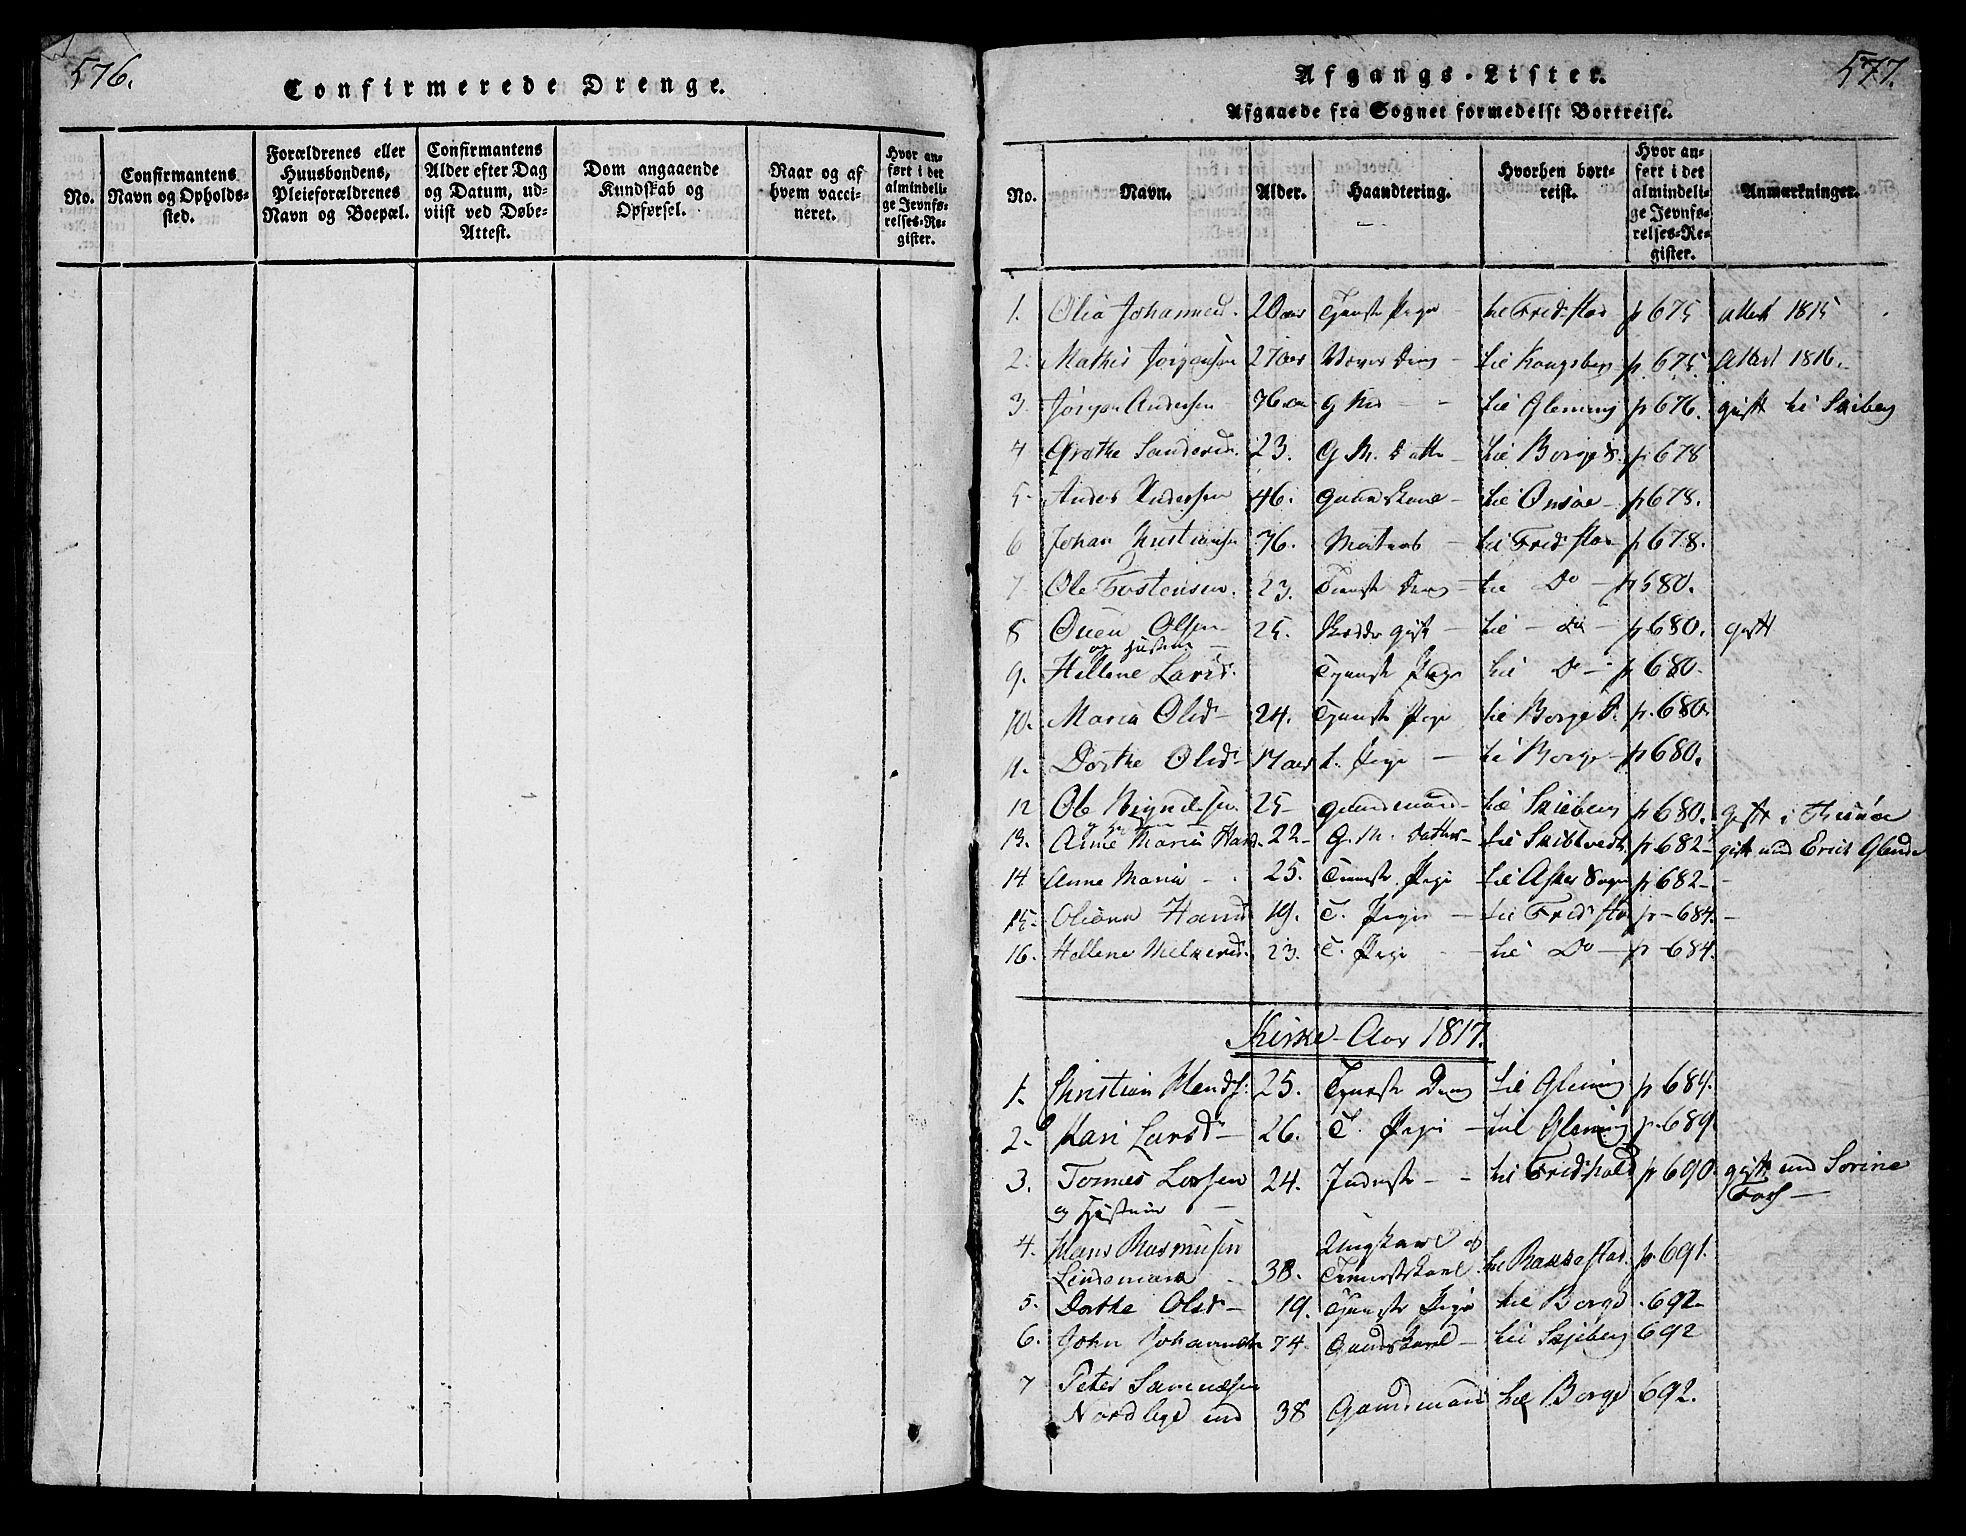 576.
Confirmerede Drenge.
No.
Confirmantens
Navn og Opholds-
sted.
Forældrenes eller
Huusbondens,
Pleieforældrenes
Navn og Boepæl.
Confirmantens
Alder efter Dag
og Datum, ud-
viist ved Døbe-
Attest.
Dom angaaende
Kundskab og
Opførsel.
Naar og af
hvem vacci-
neret.
Hvor an-
ført i det
almindeli-
ge Jevnfø-
relses-Re-
gister.
577.
Afgangs-Lister.
Afgaaede fra Sognet formedelst Bortreise.
No.
Navn.
Alder.
Haandtering.
Hvorhen bort-
reist.
Hvor an-
ført i det
almindeli-
ge Jevnfø-
relses-Re-
gister.
Anmærkninger.
1. Olia Johannesd. 20 aar Tjeneste Pige til Fridrstad p 675 attest 1815
2. Mathis Jørgensen 27 aar til Kongsberg p. 675. Attest 1816.
3. Jørgen Andersen 76 aar til Glemmig p 676. gift til Skiberg
4 Grethe Sandersd. 23. G. M. datter til Borge S. p. 678
5. Anders Andersen 46. Gaardskarl til Onsøe p 678.
6 Johan Kristiansen 76. Matros til Fridrstad p 678.
7 Ole Tostensen. 23. Tieneste Dreng til Do p 580.
8 Ouen Olsen 25. til do p 680. gift
og Hustrue
9. Hellene Larsd. Tjeneste Pige til Do p 680.
10. Maria Olsd 24. Tjeneste Pige til Borge S. p. 680.
11. Dorthe Olsd 17 aar t. Pige til Borge p 680.
12 Ole 25 gaardmand til Skieberg p 680. gift i
13. Anne Maria Hansd. 22 G. M. datter til Skibtvedt p 682 gift med Erich
14 Anne Maria 25. Tieneste Pige til Asker Sogn p 682
15. Oliana Hansd 19. T. Pige til Fridrstad p 684.
16. Hellene Melkersd. 23. T. Pige til Do p 684.
Kirke-Aar 1817.
1. Christian 25. Tjeneste Dreng til Glemmig p 684.
2. Kari Larsd 26. T. Pige til Glemmig p. 689.
3. Tonnes Larsen 24. Inderste til Fridrhald p 690. gift med Sorine
og Hustrue
4. Hans Rasmusen Ungkarl og
Lindemann 38. Tienestekarl til Rakkestad. p. 691.
5. Dorthe Olsd 19. Tjeneste Pige til Borge 692
6. John Johannesen 74. Gaardskarl til Skjeberg 692
7 Peter Sørensen
Nordlige 38 Gaardmand til Borge 692.